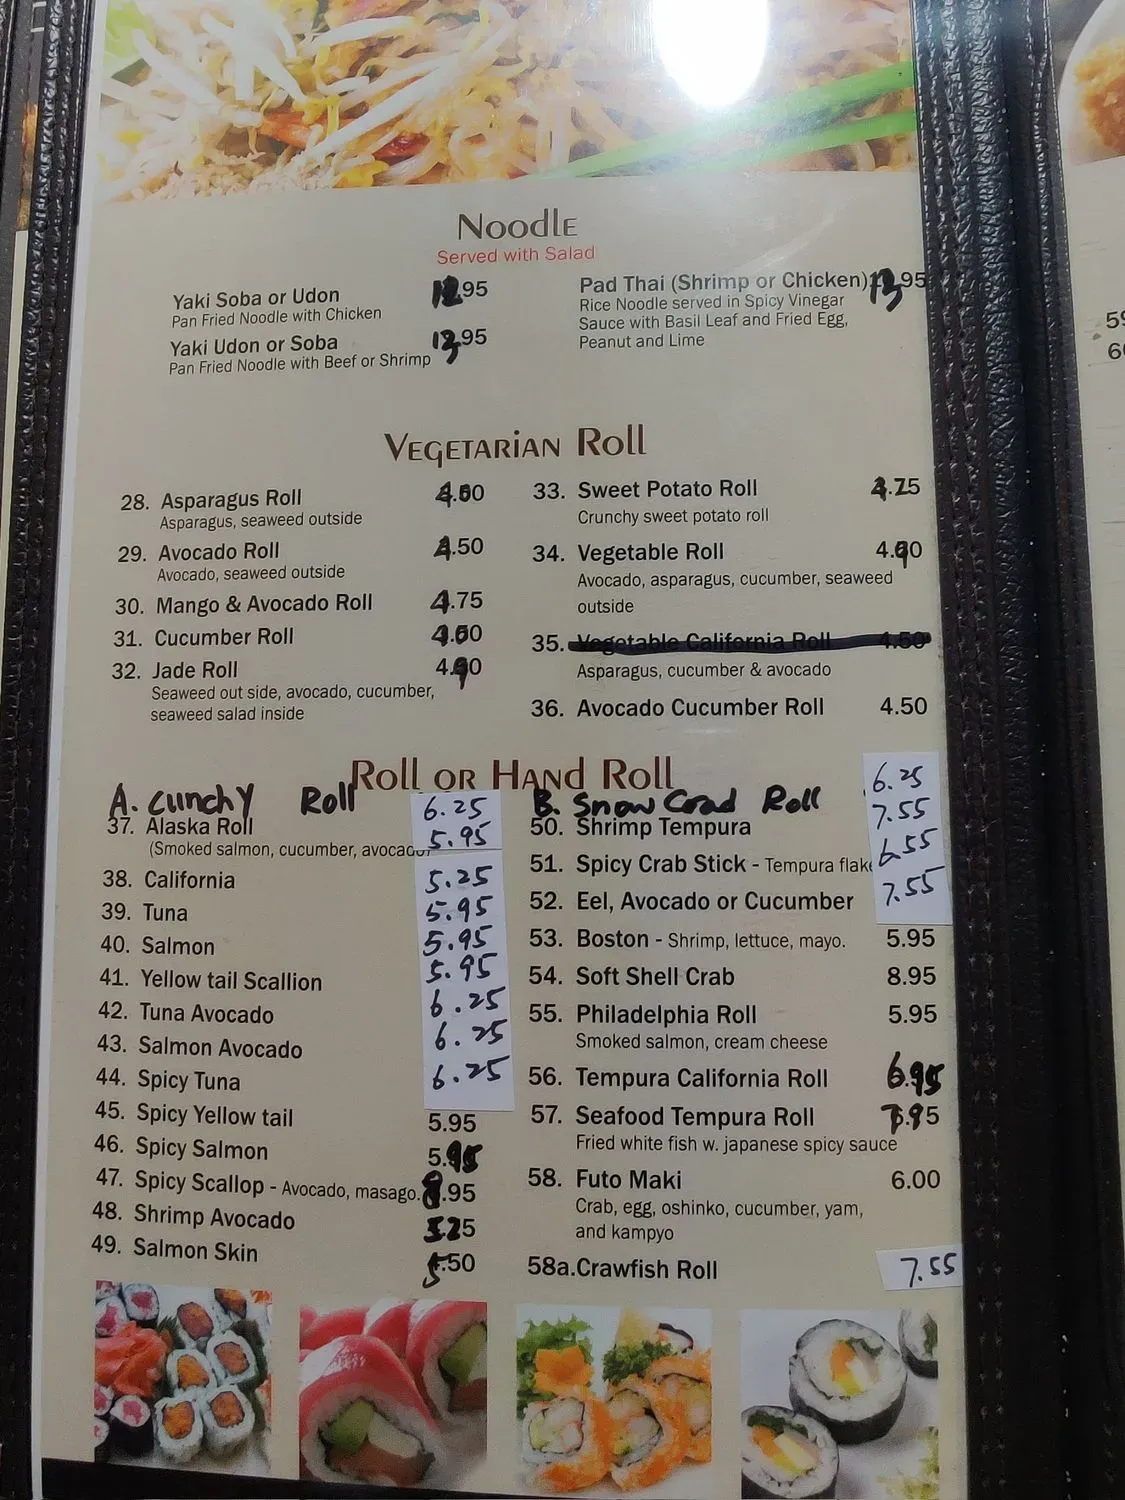 Noodle
Served with Salad
Yaki Soba or Udon .95
Pan Fried Noodle with Chicken
Yaki Udon or Soba 13.95
Pan Fried Noodle with Beef or Shrimp
Pad Thai (Shrimp or Chicken) 13.95
Rice Noodle served in Spicy Vinegar
Sauce with Basil Leaf and Fried Egg,
Peanut and Lime
Vegetarian Roll
28. Asparagus Roll
Asparagus, seaweed outside
29. Avocado Roll 4.50
Avocado, seaweed outside
30. Mango & Avocado Roll 4.75
31. Cucumber Roll
32. Jade Roll 4.90
Seaweed out side, avocado, cucumber,
seaweed salad inside
33. Sweet Potato Roll
Crunchy sweet potato roll
34. Vegetable Roll 4.90
Avocado, asparagus, cucumber, seaweed
outside
35. Vegetable California Roll 4.50
Asparagus, cucumber & avocado
36. Avocado Cucumber Roll 4.50
Roll or Hand Roll
A. Cunchy Roll 6.25
37. Alaska Roll 5.95
(Smoked salmon, cucumber, avocado)
38. California 5.25
39. Tuna 5.95
40. Salmon 5.95
41. Yellow tail Scallion 5.95
42. Tuna Avocado 6.25
43. Salmon Avocado 6.25
44. Spicy Tuna 6.25
45. Spicy Yellow tail 5.95
46. Spicy Salmon 5.95
47. Spicy Scallop - Avocado, masago. 8.95
48. Shrimp Avocado
49. Salmon Skin 5.50
B. Snow Crad Roll 6.25
50. Shrimp Tempura 7.55
51. Spicy Crab Stick - Tempura flake 6.55
52. Eel, Avocado or Cucumber 7.55
53. Boston - Shrimp, lettuce, mayo. 5.95
54. Soft Shell Crab 8.95
55. Philadelphia Roll 5.95
Smoked salmon, cream cheese
56. Tempura California Roll 6.95
57. Seafood Tempura Roll 7.95
Fried white fish w. japanese spicy sauce
58. Futo Maki 6.00
Crab, egg, oshinko, cucumber, yam,
and kampyo
58a.Crawfish Roll 7.55